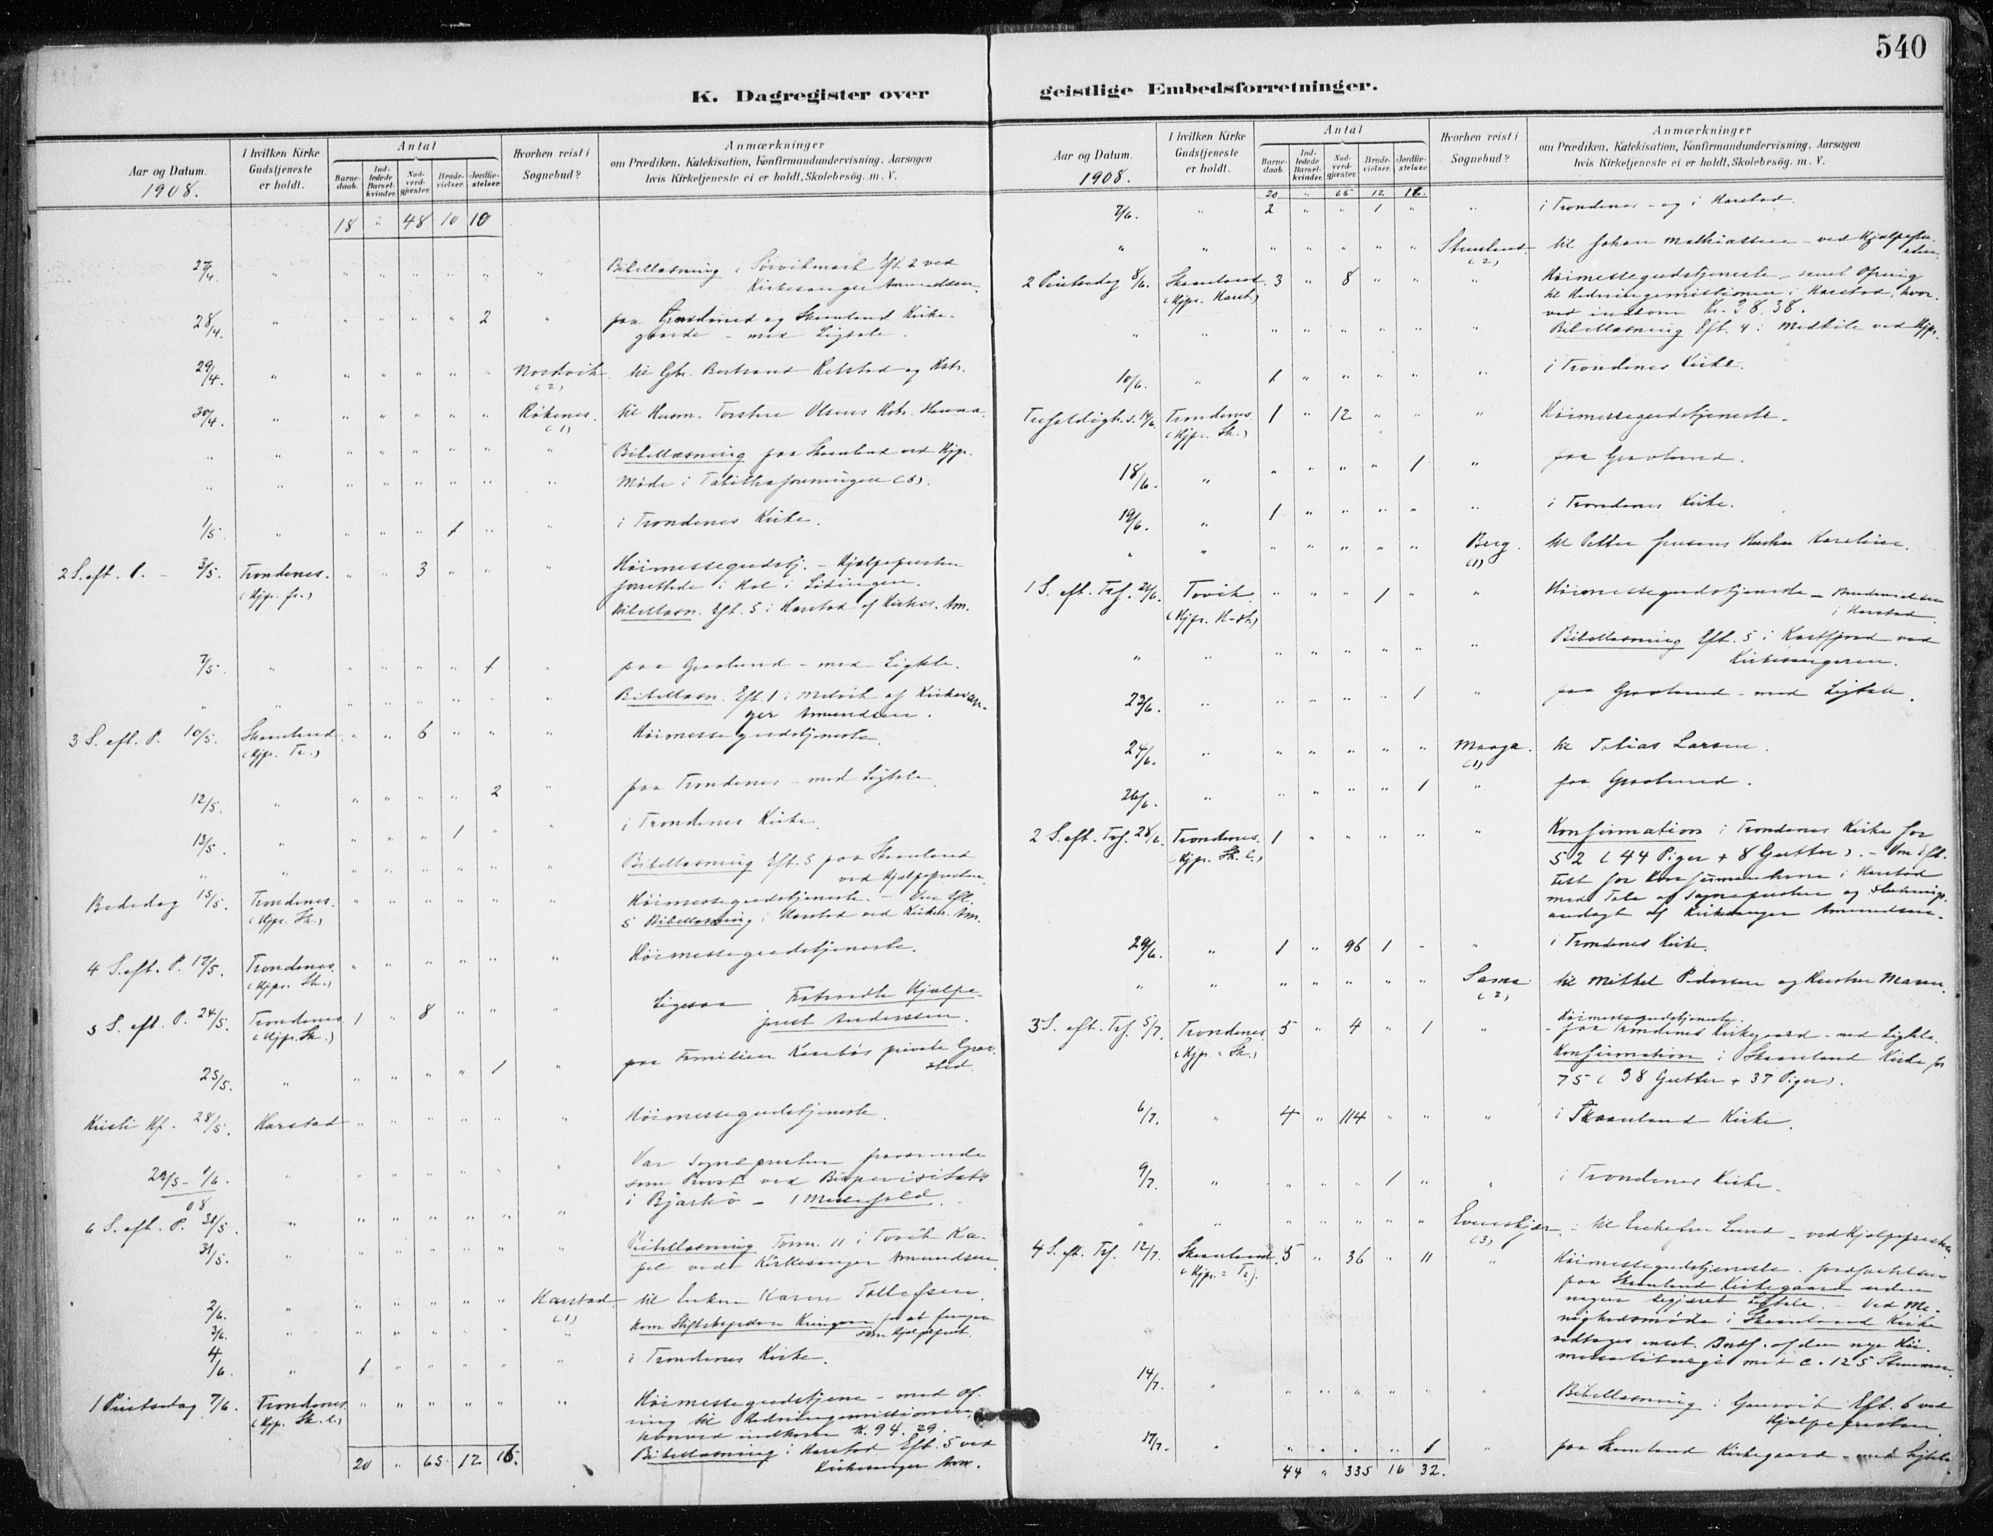 540
K. Dagregister over geistlige Embedsforretninger.
Aar og Datum.
1908.
I hvilken Kirke Gudstjeneste er holdt.
Antal
Barne-daab.
Ind-ledede Barsel-kvinder.
Nad-verd-gjester.
Brude-vielser.
Jordfæ-stelser.
Hvorhen reist i Sognebud?
Anmærkninger
om Prædiken, Katekisation, Konfirmandundervisning, Aarsagen
hvis Kirketjeneste ei er holdt, Skolebesøg. m. V.
18 " 48 10 10
27/4 " " " " " " " Bibellæsning i Sørvikmark Eft. 2 ved
Kirkesanger Amundsen.
28/4. " " " " " 2 " paa og Skaanland Kirke-
gaarde - med Ligtale.
29/4. " " " " " " Nordvik til Gbr. Bertrand og Kstr.
(2)
30/4. " " " " " " Røkenes. til Husm. Torsten Olsens Kstr. Hanna.
(1)
" " " " " " " " Bibellæsning paa Skaanland ved Hjpr.
" " " " " " " " Møde i Tabithaforeningen (8).
1/5. " " " " 1 " " i Trondenes Kirke.
2 S. eft. P. - 3/5. Trondenes. " " 3 " " " Høimessegudstj. - Hjælpepresten
(Hjpr. fr.) forrettede i Hol i Lødingen.
Bibellæsn. Eft. 5 i Harstad af Kirkes. Am.
7/5. " " " " " 1 " paa Graalund - med Ligtale.
" " " " " " " " Bibellæsn. Eft. 1 i Melvik af Kirkesan-
ger Amundsen.
3 S. eft. P. 10/5. Skaanland " " 6 " " " Høimessegudstjeneste.
(Hjpr. Tr.)
12/5. " " " " " 2 " paa Trondenes - med Ligtale.
13/5. " " " " 1 " " i Trondenes Kirke.
" " " " " " " " Bibellæsning Eft. 5 paa Skaanland
ved Hjælpepresten.
Bededag 15/5. Trondenes. " " " " " " Høimessegudstjeneste. - Eft.
(Hjpr. Sk.) 5 Bibellæsning i Harstad ved Kirkes. Am.
4 S. eft. P. 17/5. Trondenes. " " " " " " Høimessegudstjeneste.
(Hjpr. Sk.)
5 S. eft. P. 24/5. Trondenes 1 " 8 " " " Ligesaa Fratraadte Hjælpe-
(Hjpr. Sk.) prest Anderssen.
25/5. " " " " " 1 " paa Familien Kaarbøs private Grav-
sted.
Kristi Hf. 28/5. Harstad " " " " " " Høimessegudstjeneste.
29/5 - 1/6. 08 " " " " " " " Var Sognepresten fraværende
som Provst ved Bispevisitats
i Bjarkø - 1 Messefald.
6 S. eft. P. 31/5. " " " " " " "
31/5. " " " " " " " Bibellæsning Form. 11 i Tovik Ka-
pel ved Kirkesanger Amundsen
2/6. " " " " " " Harstad. til Enken Karen Tollefsen.
(1)
3/6. " " " " " " " kom Stiftskapellan for at fungere
som Hjælpeprest.
4/6. " 1 " " " " " i Trondenes Kirke.
1 Pintsedag 7/6. Trondenes " " " " " " Høimessegudstjene - med Of-
(Hjpr. Sk. l.) ring til Redningsmissionen,
hvorved indkom Kr. 94. 29.
Bibellæsning i Harstad Eft. 5 ved
Kirkesanger Am.
20 " 65 12 16.
Aar og Datum.
1908.
I hvilken Kirke Gudstjeneste er holdt.
Antal
Barne-daab.
Ind-ledede Barsel-kvinder.
Nad-verd-gjester.
Brude-vielser.
Jordfæ-stelser.
Hvorhen reist i Sognebud?
Anmærkninger
om Prædiken, Katekisation, Konfirmandundervisning, Aarsagen
hvis Kirketjeneste ei er holdt, Skolebesøg. m. V.
20 " 65 12 16.
7/6. " 2 " " 1 " " i Trondenes - og i Harstad.
" " " " " " " (2) til Johan Mathiassen - ved Hjælpepre-
sten.
2 Pintsedag 8/6. Skaanland 3 " 8 " " " Høimessegudstjeneste - samt Ofring
(Hjpr. Harst.) til Redningsmissionen i Harstad, hvor-
ved indkom Kr. 38,38.
" " " " " " " " Bibellæsning Eft. 4 i Medkile ved Hjpr.
10/6. " 1 " " " " " i Trondenes Kirke.
Trefoldigh. S. 14/6. Trondenes 1 " 12 " " " Høimessegudstjeneste.
(Hjpr. Sk.)
18/6. " " " " " 1 " paa Graalund.
19/6. " 1 " " " " " i Trondenes Kirke.
" " " " " " " Berg. til Petter Jensens Hustru Karoline.
(1)
1 S. eft. Tref. 21/6. Tovik " " " 1 " " Høimessegudstjeneste - Brudevielsen
(Hjpr. H-st.) i Harstad.
" " " " " " " " Bibellæsning Eft. 5 i Kasfjord ved
Kirkesangeren.
23/6. " " " " " 1 " paa Graalund - med Ligtale.
24/6. " " " " " " Maaga. til Tobias Larsen.
(1)
26/6. " " " " " 1 " paa Graalund.
2 S. eft. Tref. 28/6. Trondenes. 1 " " " " " Konfirmation i Trondenes Kirke for
(Hjpr. Sk. l.) 52 (44 Piger + 8 Gutter). - Eft.
fest for Konfirmanterne i Harstad
med Tale af Sognepresten og Slutnings-
andagt af Kirkesanger Amundsen.
29/6. " 1 " 96 1 " " i Trondenes Kirke.
" " " " " " " Sama til Mikkel Pedersen og Hustru Maren.
(2)
3 S. eft. Tref. 5/7. Trondenes 5 " 4 " 1 " Høimessegudstjeneste.
(Hjpr. Sk.) - paa Trondenes Kirkegaard - med Ligtale.
Konfirmation i Skaanland Kirke for
75 (38 Gutter + 37 Piger).
6/7. " 4 " 114 " " " i Skaanland Kirke.
9/7. " " " " 1 " " i Trondenes Kirke.
" " " " " " " Evenskjær til Lund - ved Hjælpepresten
(3)
4 S. eft. Tref. 12/7. Skaanland. 5 " 36 " 11 " Høimessegudstjeneste. Jordfæstelsen
(Hjpr. = Tr.). paa Skaanland Kirkegaard uden
nogen Ligtale. - Ved Me-
nighedsmøde i Skaanland Kirke
vedtoges af den nye Høi-
messeliturgi med c. 125 Stemmer.
14/7. " " " " " " " Bibellæsning i Eft. 6 ved
Hjælpepresten.
17/7. " " " " " 1 " paa Skaanland Kirkegaard - med Ligtale.
44 " 335 16 32.